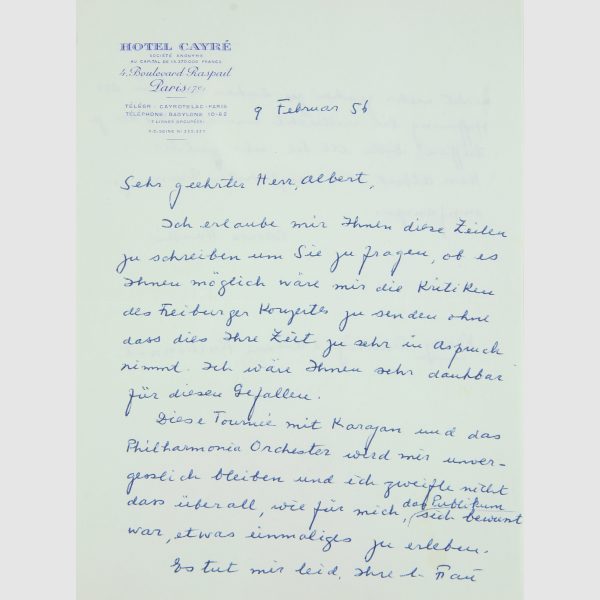 HOTEL CAYRÉ
SOCIÉTÉ ANONYME
AU CAPITAL DE 15.370.000 FRANCS
4, Boulevard Raspail
Paris (7e)
TÉLÉGR : CAYROTELAC-PARIS
TÉLÉPHONE : BABYLONE 10-82
(7 LIGNES GROUPÉES)
9 Februar 56
Sehr geehrter Herr, Albert,
Ich erlaube mir Ihnen diese Zeilen
zu schreiben um Sie zu fragen, ob es
Ihnen möglich wäre mir die Kritiken
des Freiburger Konzertes zu senden ohne
dass dies Ihre Zeit zu sehr in Aspruch
nimmt. Ich wäre Ihnen sehr dankbar
für diesen Gefallen.
Diese Tournée mit Karajan und das
Philharmonia Orchester wird mir unver-
gesslich bleiben und ich zweifle nicht
dass überall, wie für mich, das Publikum sich bewusst
war, etwas einmaliges zu erleben.
Es tut mir leid, Ihre l. Frau